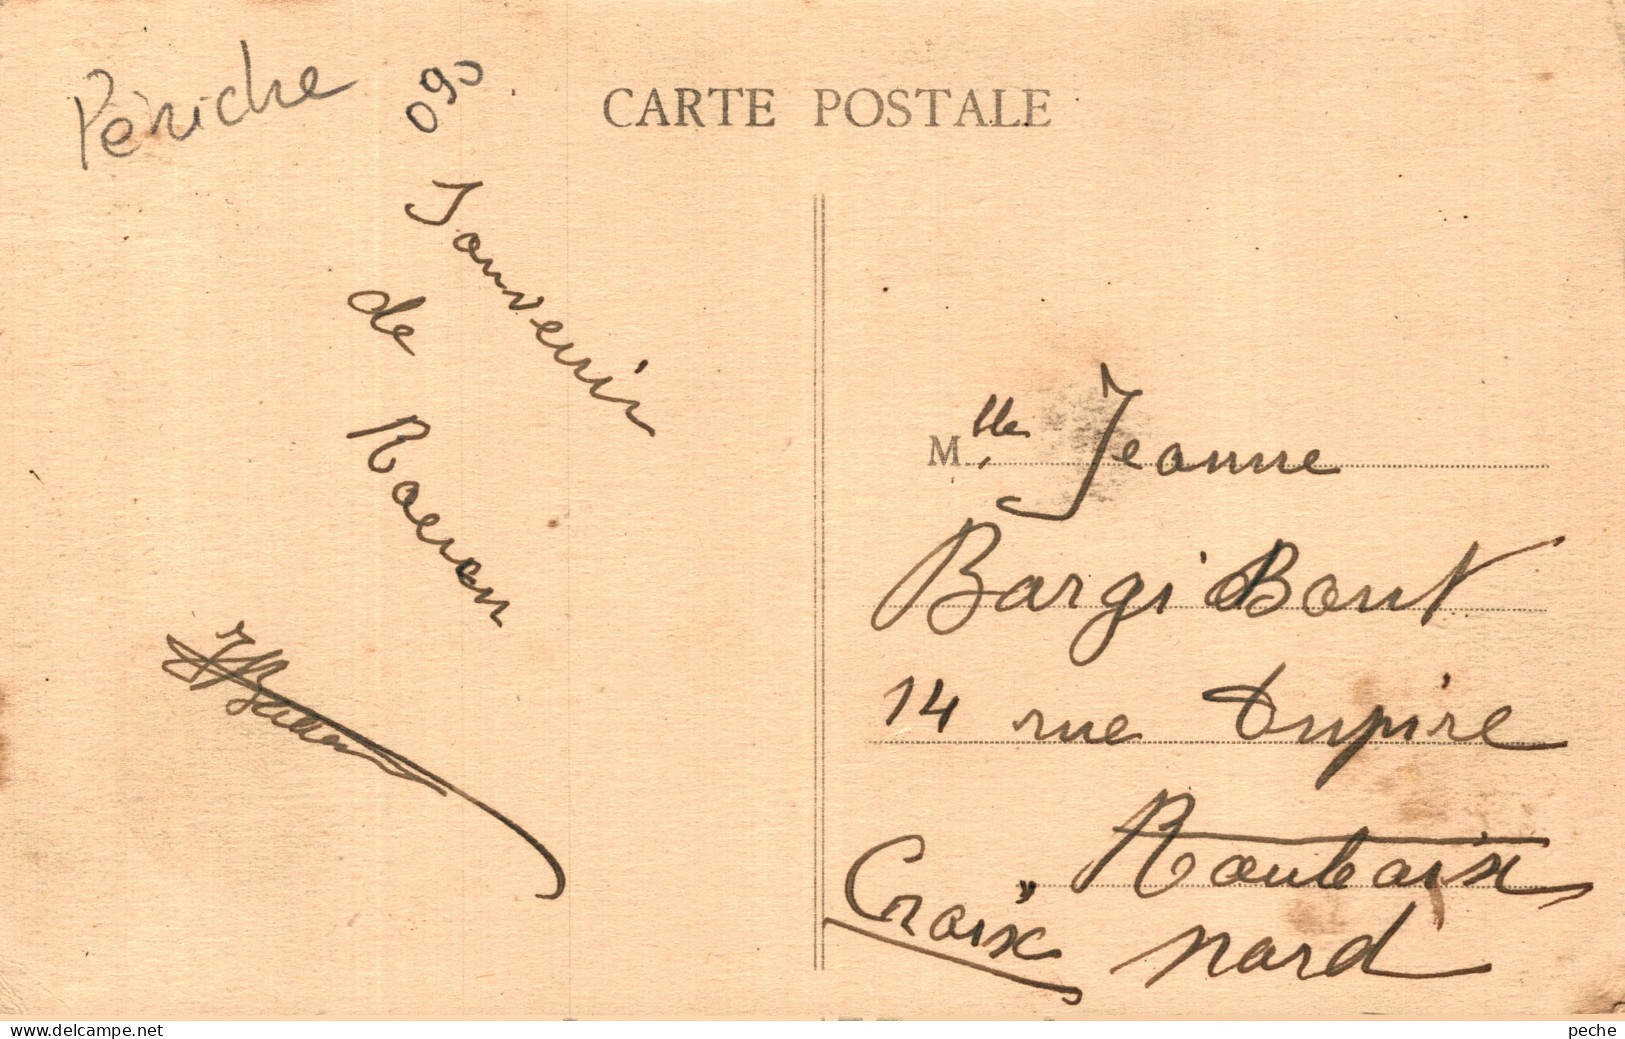 Péniche
090
CARTE POSTALE
Souvenir
de
Rouen
Mlle Jeanne
BargiBant
14 rue Dupire
Roubaix
Croix
Nord
www.delcampe.net
peche